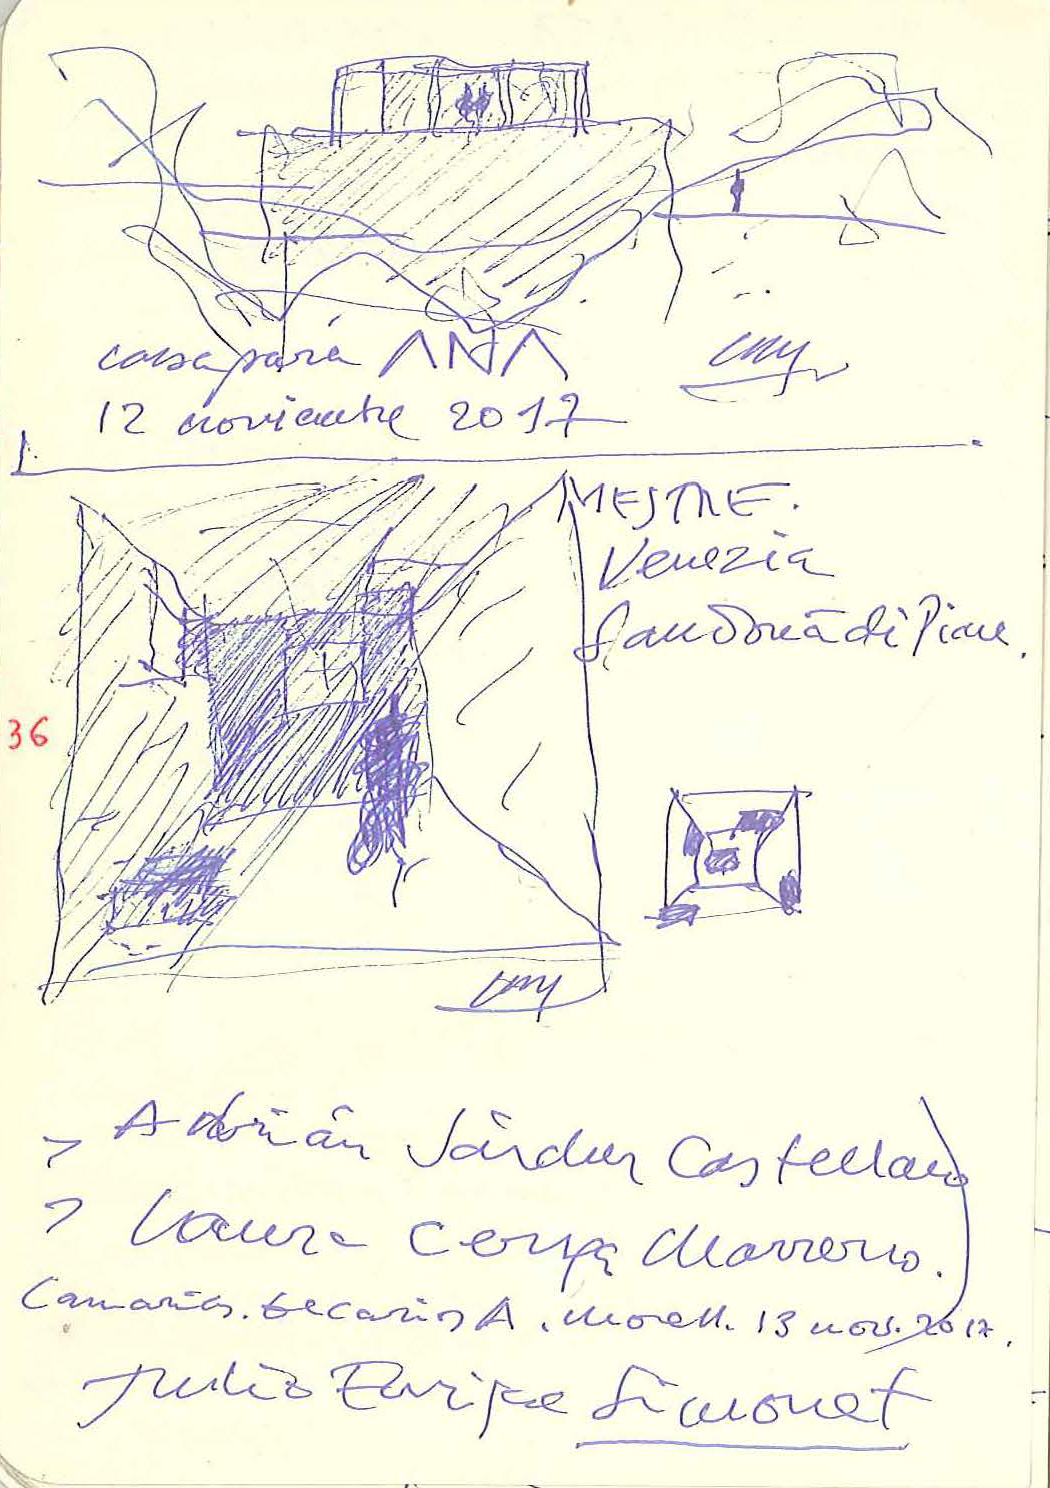 casa para ANA
12 noviembre 2017
MESTRE.
Venezia
San Donà di Piave.
36
> Adrián Sánchez Castellano
> Laura Cerpa Marrero.
Canarias. becarios A. 13 nov. 2017.
Julio Enrique Simonet